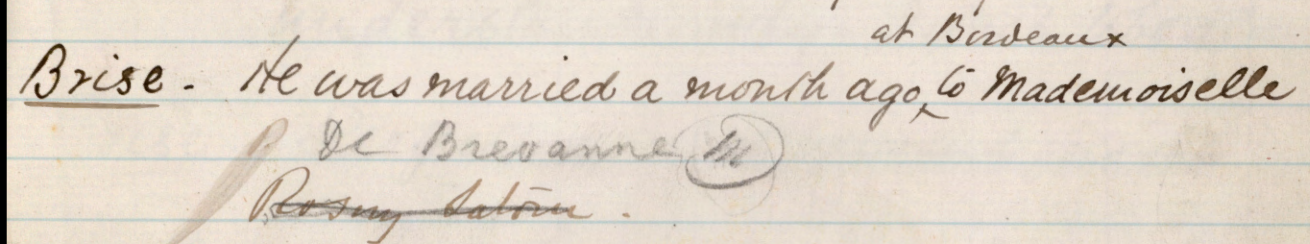 at Bordeaux
Brise. He was married a month ago, to Mademoiselle
De Brevanne M
Rosny